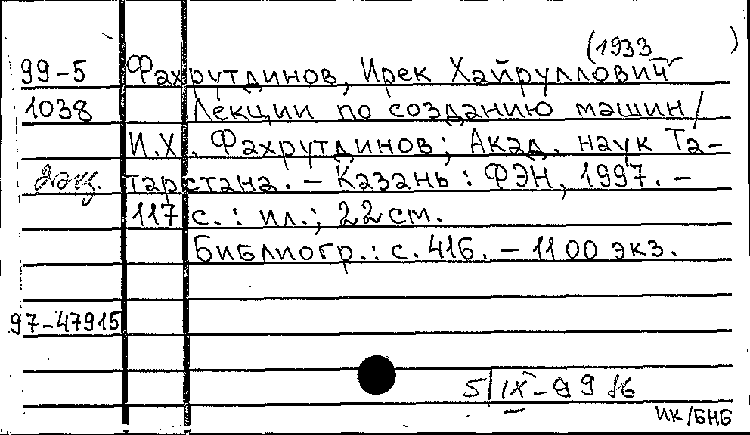 (1933 )
99-5 Фахрутдинов, Ирек Хайруллович
1038 Лекции по созданию машин /
И.Х. Фахрутдинов; Акад. наук Та-
тарстана. - Казань : ФЭН, 1997. -
117 с. : ил.; 22 см.
Библиогр.: с. 416. - 1100 экз.
97-47915
5/IX-99
ИК/БНБ